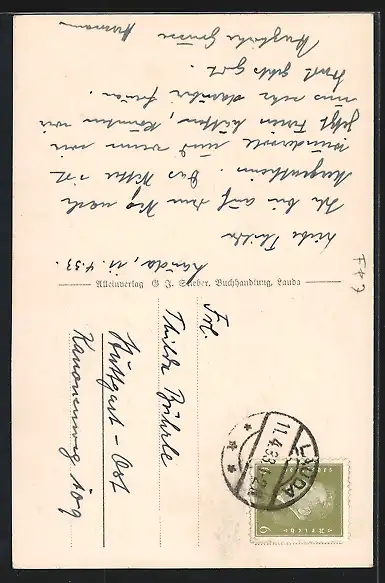 Lauda, 11.4.33.
Liebe Thilde
Ich bin auf dem Weg nach
Mergentheim. Das Wetter ist
wundervoll und wenn wir
jetzt Ferien hätten, könnten wir
uns sehr darüber freuen.
Sonst gehts gut.
Herzliche Grüsse
Hermann
Alleinverlag G. J. Stieber, Buchhandlung, Lauda
Frl.
Thilde Bührle
Stuttgart - Ost
Kanonenweg 109
LAUDA
11.4.33
Deutsches
Reich
6